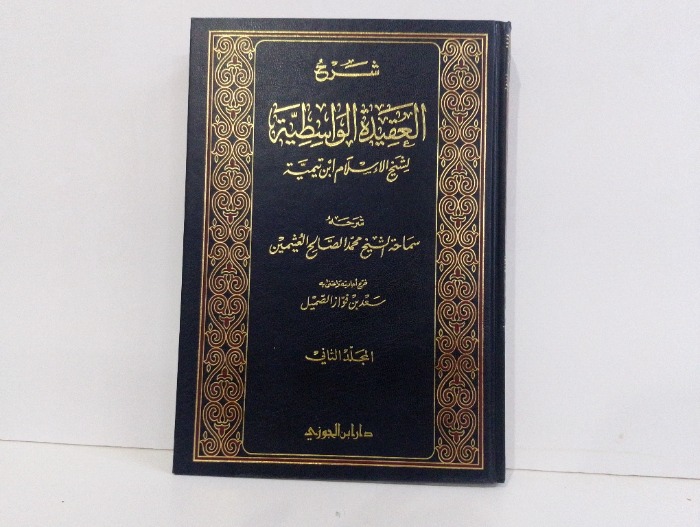 شرح
العقيدة الواسطية
لشيخ الإسلام ابن تيمية
شرحه
سماحة الشيخ محمد الصالح العثيمين
خرج أحاديثه واعتنى به
سعد بن فواز الصميل
المجلد الثاني
دار ابن الجوزي